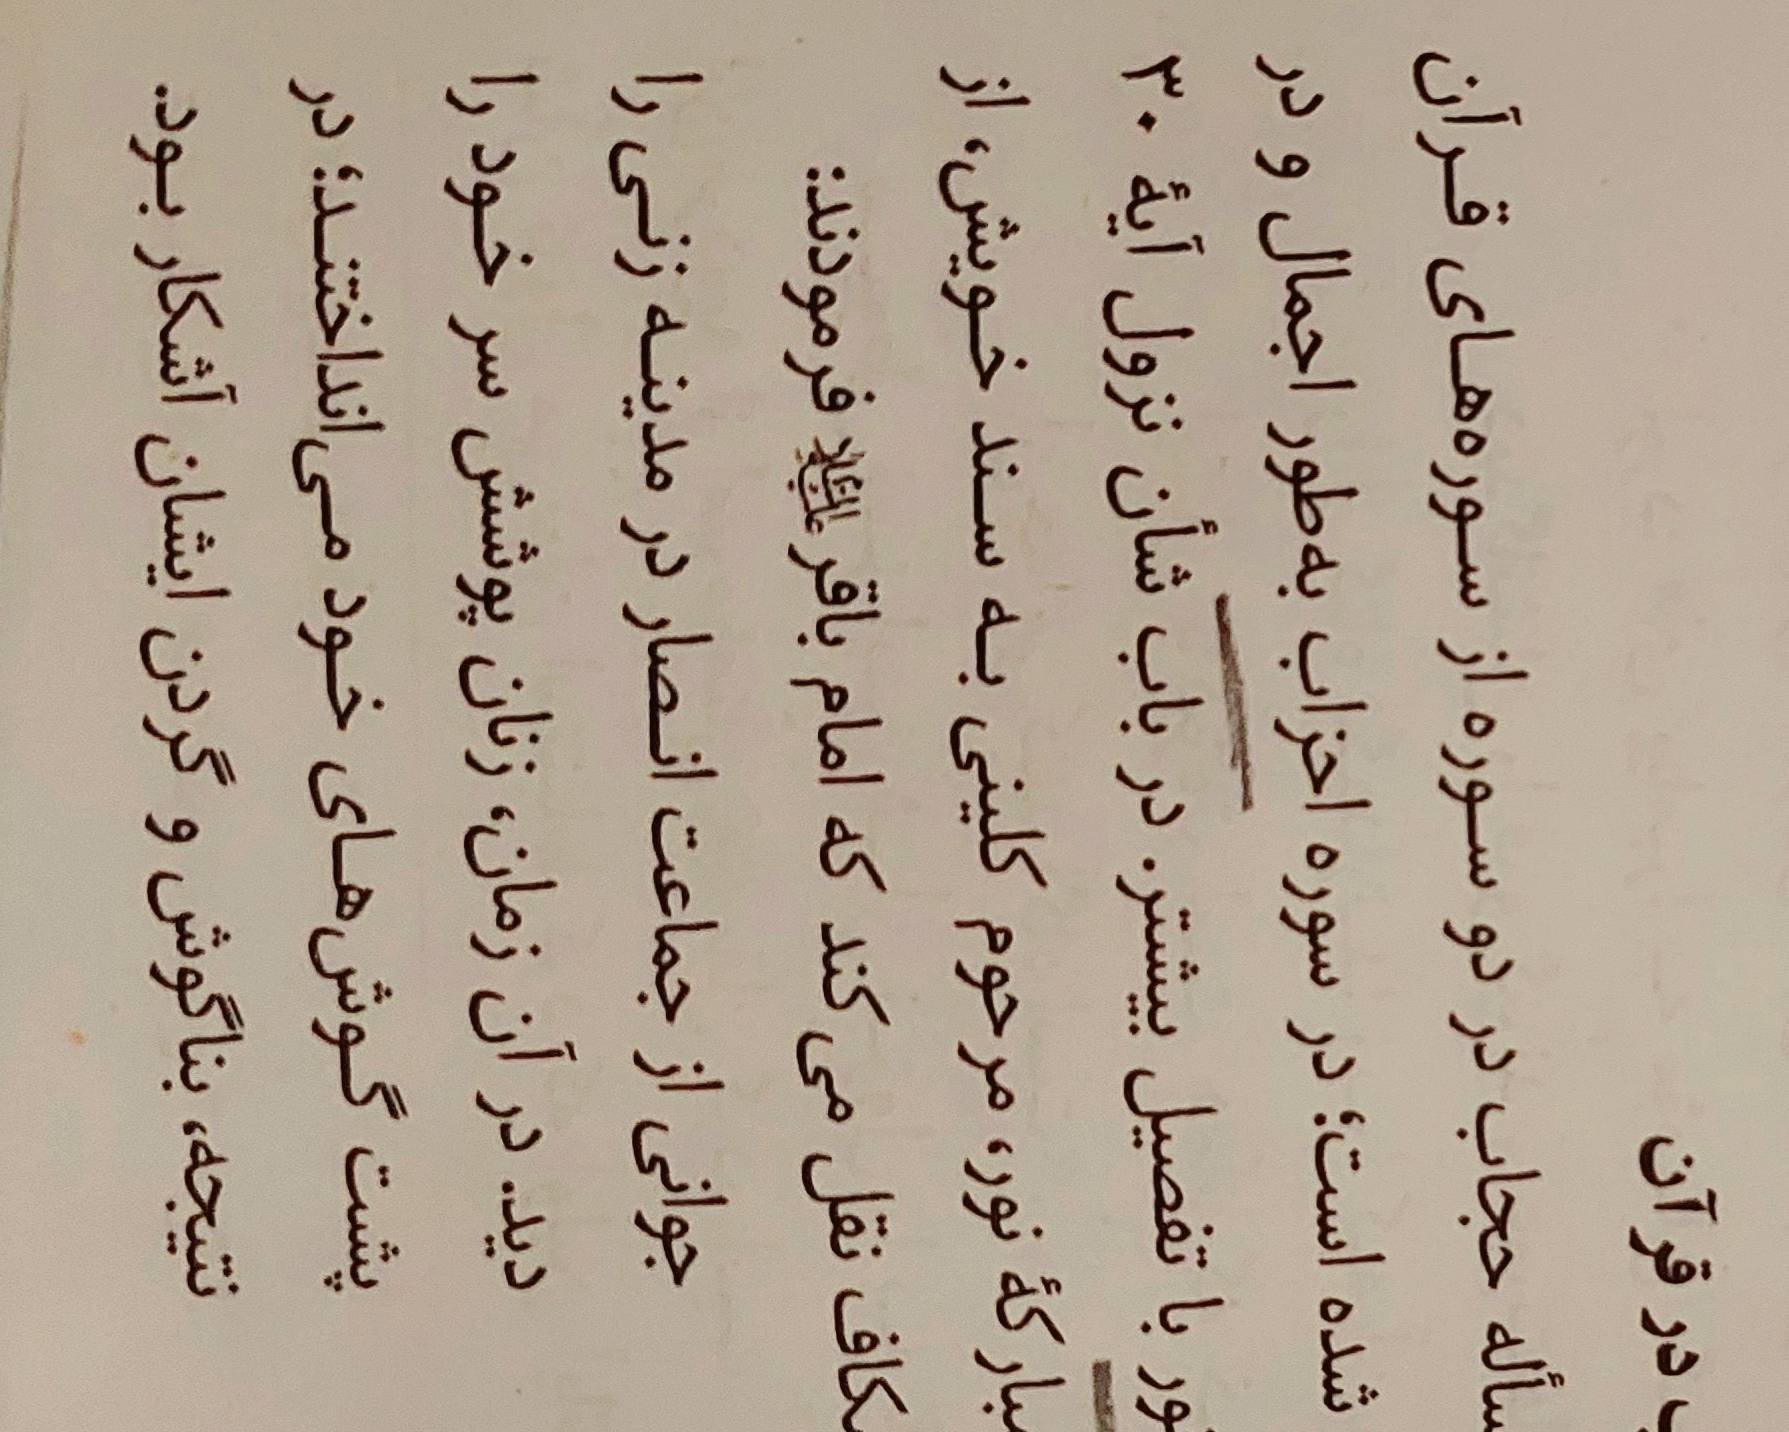 در قرآن
حجاب در دو سوره از سوره‌های قرآن
شده است؛ در سوره احزاب به‌طور اجمال و در
با تفصیل بیشتر. در باب شأن نزول آیۀ ۳۰
مبارکۀ نور، مرحوم کلینی به سند خویش، از
نقل می‌کند که امام باقر علیه‌السلام فرمودند:
جوانی از جماعت انصار در مدینه زنی را
دید. در آن زمان، زنان پوشش سر خود را
پشت گوش‌های خود می‌انداختند؛ در
نتیجه، بناگوش و گردن ایشان آشکار بود.